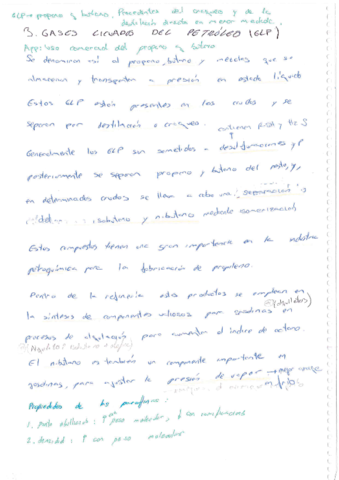 GLP → propano y butano. Procedentes del craqueo y de la
destilación directa en menor medida.
3. GASES LICUADOS DEL PETRÓLEO (GLP)
App: uso comercial del propano y butano
Se denominan así al propano, butano y mezclas que se
almacenan y transportan a presión en estado líquido
Estos GLP están presentes en los crudos y se
separan por destilación o craqueo.
Generalmente los GLP son sometidos a desulfuraciones y
posteriormente se separan propano y butano del resto, y,
en determinados crudos se lleva a cabo una separación
isobutano y n-butano mediante isomerización
Estos compuestos tienen una gran importancia en la industria
petroquímica para la fabricación de propileno.
Dentro de la refinería estos productos se emplean en
la síntesis de componentes valiosos para gasolinas en
procesos de alquilación para aumentar el índice de octano.
El n-butano es también un componente importante en
gasolinas, para ajustar la presión de vapor
Propiedades de las parafinas:
1. Punto ebullición: ↑ peso molecular, ↓ con ramificaciones
2. densidad: ↑ con peso molecular